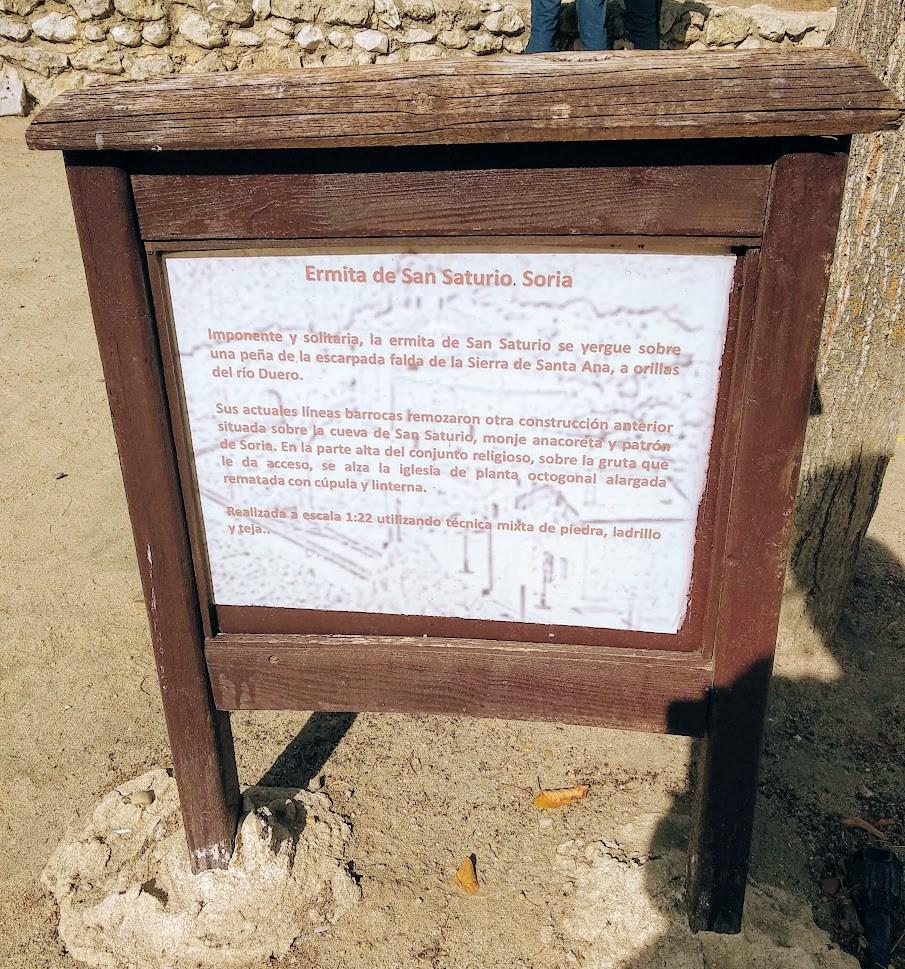 Ermita de San Saturio. Soria
Imponente y solitaria, la ermita de San Saturio se yergue sobre
una peña de la escarpada falda de la Sierra de Santa Ana, a orillas
del río Duero.
Sus actuales líneas barrocas remozaron otra construcción anterior
situada sobre la cueva de San Saturio, monje anacoreta y patrón
de Soria. En la parte alta del conjunto religioso, sobre la gruta que
le da acceso, se alza la iglesia de planta octogonal alargada
rematada con cúpula y linterna.
Realizada a escala 1:22 utilizando técnica mixta de piedra, ladrillo
y teja..